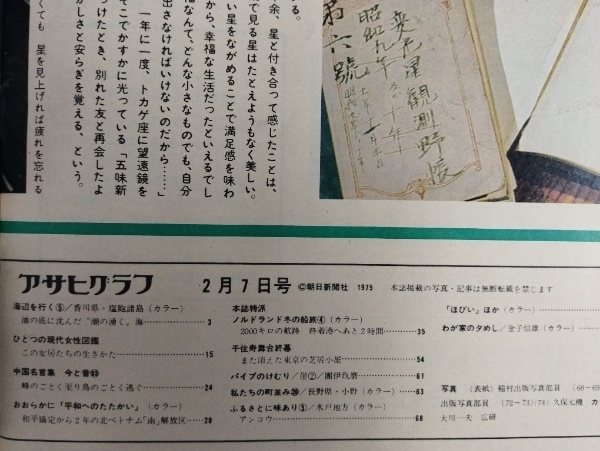 る。
余、星と付き合って感じたことは、
で見る星はたとえようもなく美しい。
い星をながめることで満足感を味わ
から、幸福な生活だったといえるでし
福なんて、どんな小さなものでも、自分
出さなければいけないのだから……」
一年に一度、トカゲ座に望遠鏡を
そこでかすかに光っている「五味新
つけたとき、別れた友と再会したよ
かしさと安らぎを覚える、という。
くても 星を見上げれば疲れを忘れる
変光星観測野帳
昭和九年
第六號
アサヒグラフ 2月7日号 ©朝日新聞社 1975 本誌掲載の写真・記事は無断転載を禁じます
海辺を行く⑤/香川県・塩飽諸島(カラー)
油の底に沈んだ“潮の湧く。海 3
ひとつの現代女性図鑑
この女房たちの生きかた 15
中国名言集 今と昔
蜂のごとく至り鳥のごとく逃ぐ 24
おおらかに「平和へのたたかい」(カラー)
和平協定から2年の北ベトナム「南」解放区 28
本誌特派
ノルドランド冬の船旅④(カラー)
2000キロの航路 終着港へあと2時間 35
千住寿舞台終幕
また消えた東京の芝居小屋 54
パイプのけむり/崖②/團伊玖磨 61
私たちの町並み⑳/長野県・小野(カラー) 63
ふるさとに味あり⑤/水戸地方(カラー)
アンコウ 68
「ほびい」ほか(カラー)
わが家の夕めし/金子信雄(カラー)
写真 (表紙)稲村出版写真部員 (68—69
出版写真部員 (72—73)(74)久保元機 カ
大川一夫 広研